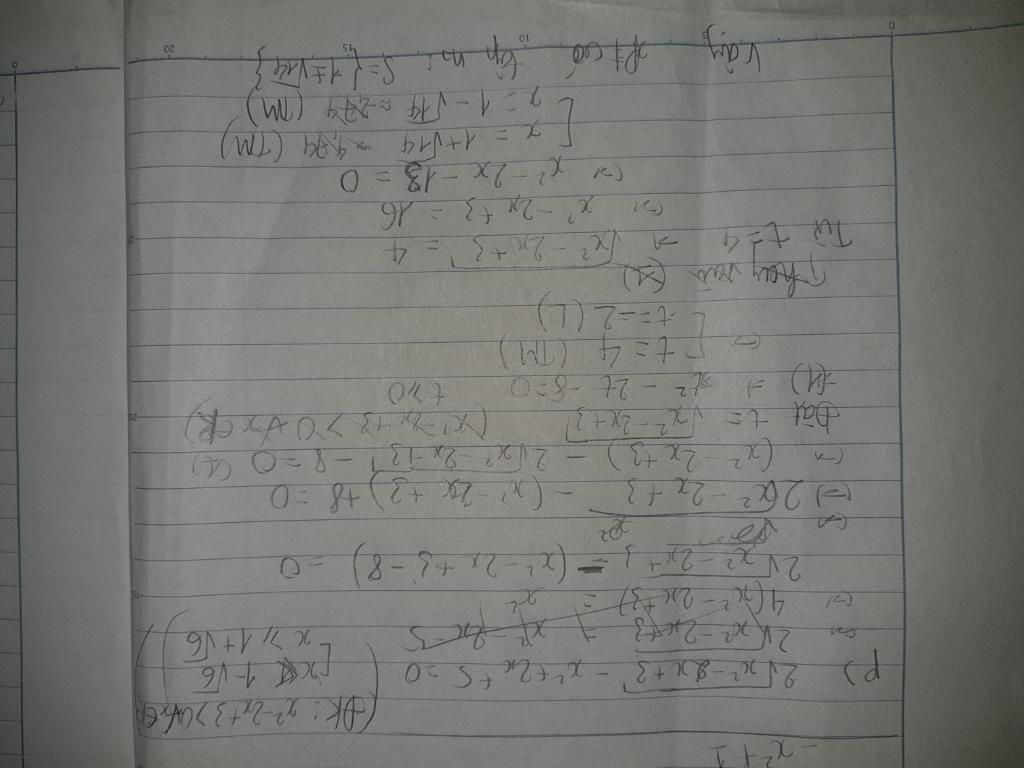 - x² + 1
(ĐK: x² - 2x + 3 > 0 ∀x ∈
p) 2√x² - 2x + 3 - x² + 2x + 5 = 0
[x ≤ 1 - √6
⇔ 2√x² - 2x + 3 = x² - 2x - 5
[x ≥ 1 + √6
⇔ 4(x² - 2x + 3) = x²
2√x² - 2x + 3 - (x² - 2x + 3 - 8) = 0
⇔
⇔ 2√x² - 2x + 3 - (x² - 2x + 3) + 8 = 0
⇔ (x² - 2x + 3) - 2√x² - 2x + 3 - 8 = 0 (1)
Đặt t = √x² - 2x + 3 (x² - 2x + 3 > 0 ∀x ∈ R)
(1) ⇒ t² - 2t - 8 = 0 t ≥ 0
⇔ [t = 4 (TM)
[t = -2 (L)
Thay vào (1)
Từ t = 4 ⇒ √x² - 2x + 3 = 4
⇔ x² - 2x + 3 = 16
⇔ x² - 2x - 13 = 0
[x = 1 + √14 ≈ 4,74 (TM)
[x = 1 - √14 ≈ -2,74 (TM)
Vậy pt có tập n: S = {1 ± √14}